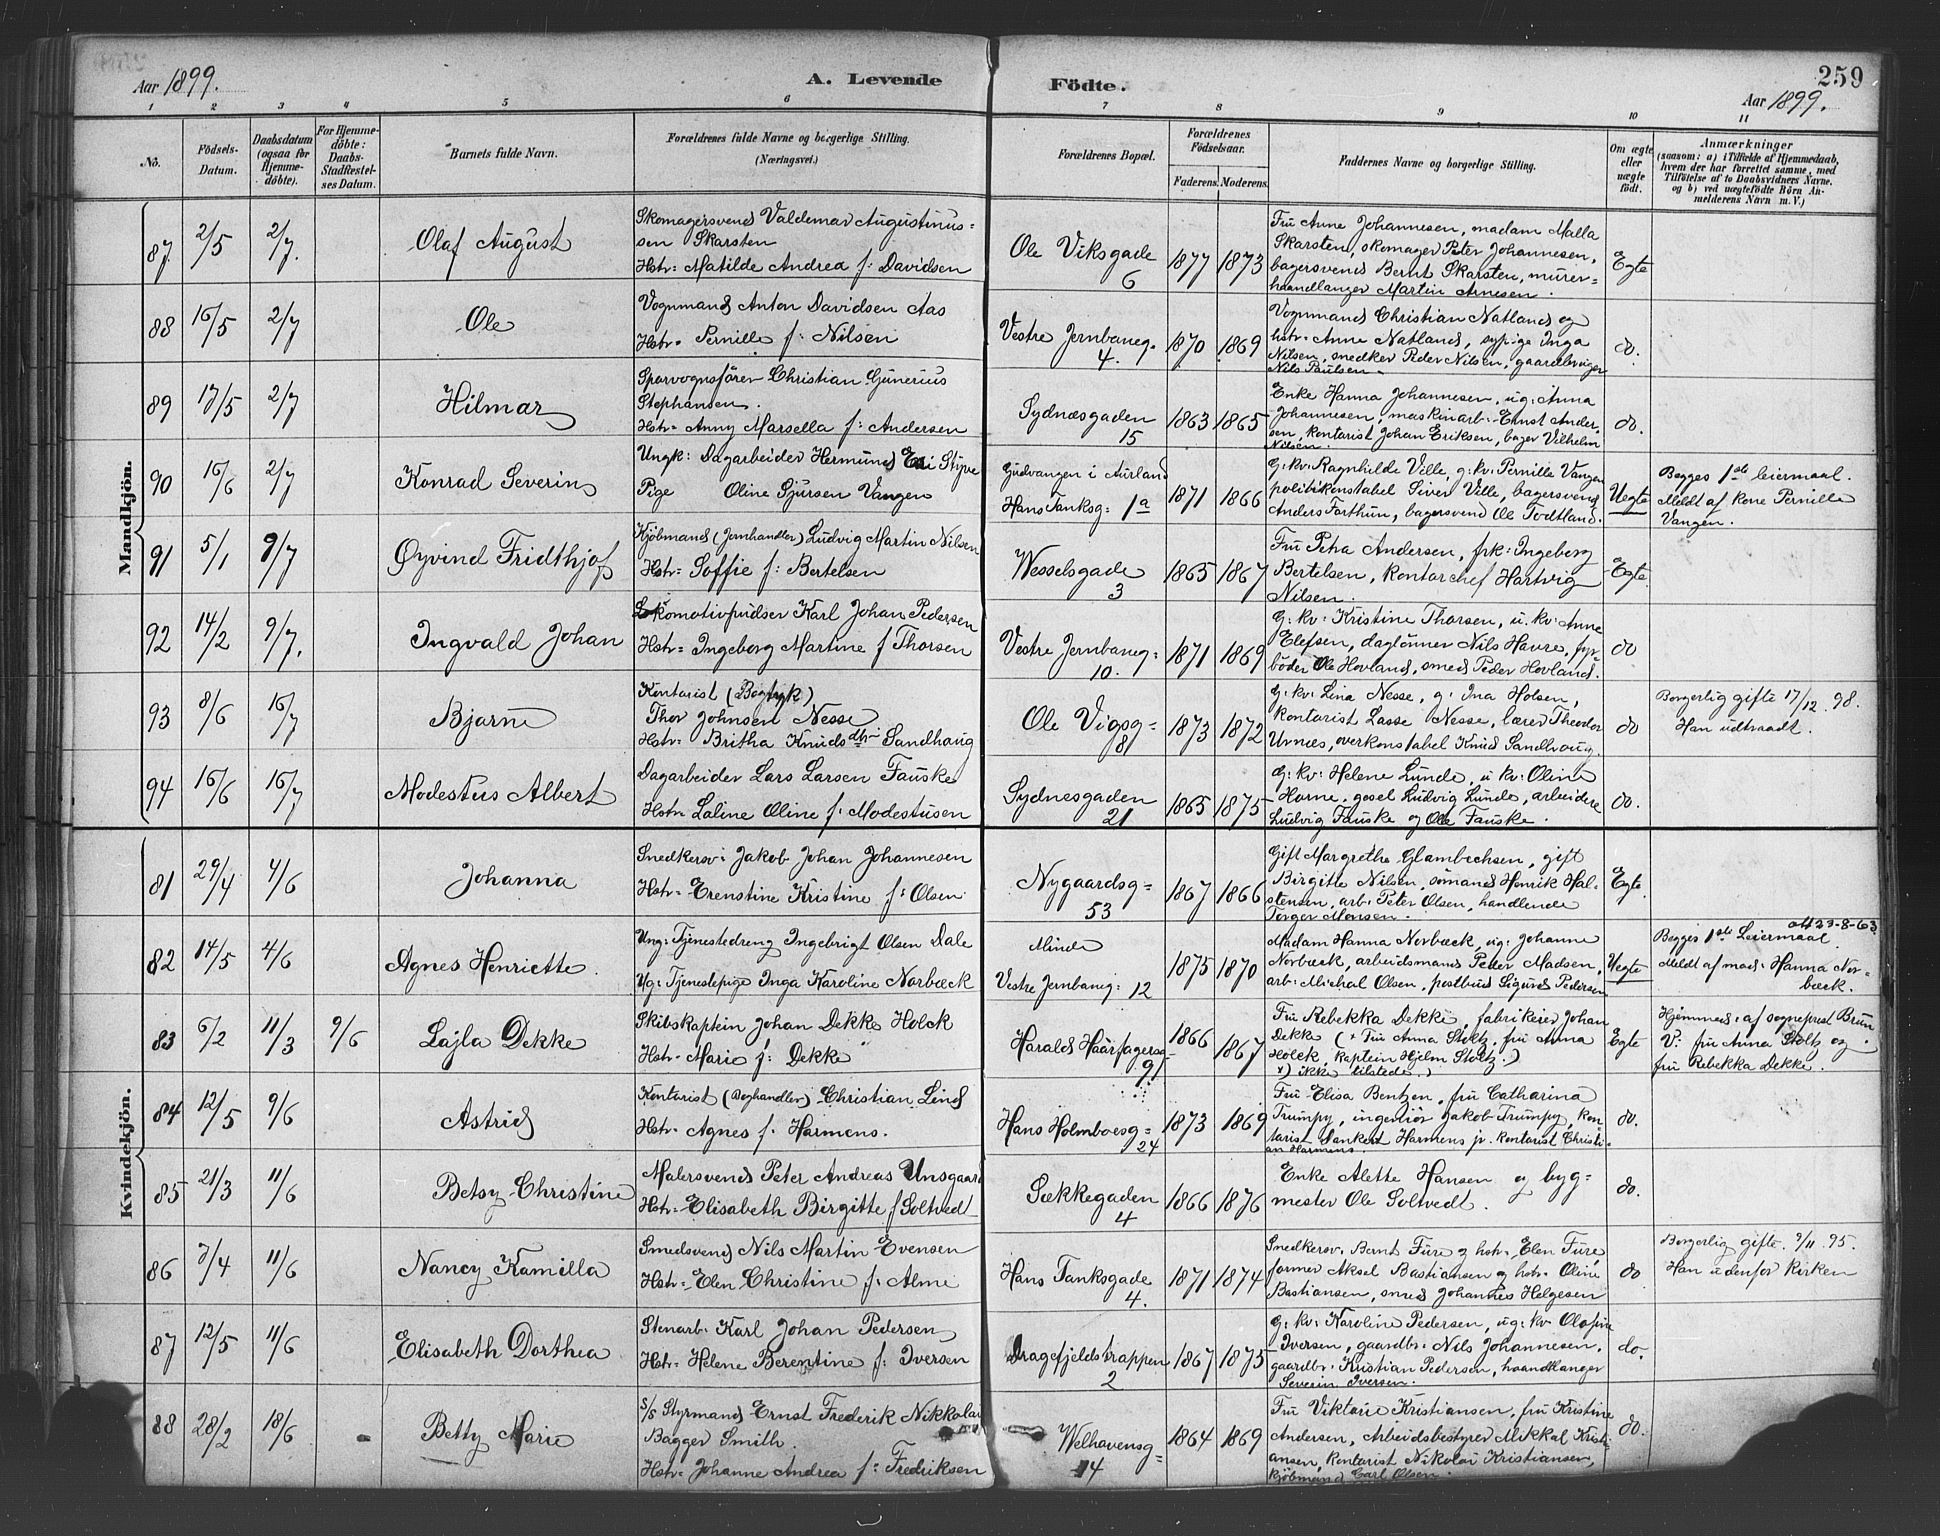 Aar 1899.
A. Levende Födte.
259
Aar 1899.
1 2 3 4 5 6 7 8 9 10 11
No.
Födsels-Datum.
Daabsdatum (ogsaa før Hjemme-döbte).
For Hjemme-döbte: Daabs-Stadfæstel-ses Datum.
Barnets fulde Navn.
Forældrenes fulde Navne og borgerlige Stilling. (Næringsvei.)
Forældrenes Bopæl.
Forældrenes Födselsaar.
Faderens. Moderens.
Faddernes Navne og borgerlige Stilling.
Om ægte eller uægte födt.
Anmærkninger
(saasom: a) i Tilfælde af Hjemmedaab, hvem der har forrettet samme, med Tilföielse af to Daabsvidners Navne, og b) ved uægtefödte Börn An-melderens Navn m. V.)
Mandkjön.
87 2/5 2/7. Olaf August
Skomagersvend Valdemar Augustinus-
sen Skarsten
Hstr: Matilde Andrea f: Davidsen
Ole Viksgade 6
1877 1873
Fru Anne Johannesen, madam Malla
Skarsten, skomager Peter Johannesen,
bagersvend Bernt Skarsten, murer-
haandlanger Martin Arnesen.
Egte
88 16/5 2/7 Ole
Vognmand Anton Davidsen Aas
Hstr: Pernille f: Nilsen
Vestre Jernbaneg. 4.
1870 1869
Vognmand Christian Natland og
hstr: Anne Natland, sypige Inga
Nilsen, snedker Peder Nilsen, gaardbruger
Nils Paulsen.
do.
89 17/5 2/7 Hilmar
Sporvognsfören Christian Gunerius
Stephansen.
Hstr: Anny Marsella f: Andersen
Sydnæsgaden 15
1863 1865
Enke Hanna Johannesen, ug: Anna
Johannesen, maskinarb: Ernst Ander-
sen, kontorist Johan Eriksen, bager Vilhelm
Nilsen.
do.
90 16/6 2/7 Konrad Severin
Ungk: Dagarbeider Hermund Styve
Pige Oline Sjursen Vangen
Gudvangen i Aurland
Hans Tanksg: 1a
1871 1866
g: kv: Ragnhilde Ville, g: kv: Pernille Vangen
politikonstabel Siver Ville, bagersvend
Anders Forthun, bagersvend Ole Todtland.
Uegte
Begges 1ste leiermaal.
Meldt af kone Pernille
Vangen.
91 5/1 9/7 Øyvind Fridthjof
Kjöbmand (Jernhandler) Ludvig Martin Nilsen
Hstr: Soffie f: Bertelsen
Wesselsgade 3
1865 1867
Fru Petra Andersen, frk: Ingeborg
Bertelsen, kontorchef Hartvig
Nilsen.
Egte
92 14/2 9/7. Ingvald Johan
Lokomotivpudser Karl Johan Pedersen
Hstr: Ingeborg Martine f Thorsen
Vestre Jernbaneg: 10.
1871 1869
G: kv: Kristine Thorsen, u. kv: Anne
Elefsen, daglönner Nils Havre, fyr-
böder Ole Hovland, smed Peder Hovland.
do
93 8/6 16/7 Bjarne
Kontorist (Bogtryk)
Thor Johnsen Nesse
Hstr: Britha Knudsdtr: Sandhaug
Ole Vigsg- 8
1873 1872
g: kv: Lina Nesse, g: Ina Holsen,
kontorist Lasse Nesse, lærer Theodor
Urnæs, overkonstabel Knud Sandhoug.
do
Borgerlig gifte 17/12.98.
Han udtraadt.
94 16/6 16/7 Modestus Albert
Dagarbeider Lars Larsen Fauske
Hstr Laline Oline f: Modestusen
Sydnesgaden 21
1865 1875
g: kv: Helene Lunde, u kv: Oline
Horne, gesel Ludvig Lunde, arbeidere
Ludvig Fauske og Ole Fauske.
do.
Kvindekjön.
81 29/4 4/6 Johanna
Snedkersv: Jakob Johan Johannesen
Hstr: Erenstine Kristine f: Olsen
Nygaardsg= 53
1867 1866
Gift Margrethe Glambechsen, gift
Birgitte Nilsen, sömand Henrik Hal-
stensen, arb: Peter Olsen, handlende
Torger Monsen.
Egte
82 14/5 4/6 Agnes Henriette.
Ung: Tjenestedreng Ingebrigt Olsen Dale
Ug: Tjenestepige Inga Karoline Norbæck
Minde
Vestre Jernbaneg: 12
1875 1870
Madam Hanna Norbæck, ug: Johanne
Norbæck, arbeidsmand Peder Madsen,
arb: Michal Olsen, postbud Sigurd Pedersen
Uegte
att 23-8-63.
Begges 1ste Leiermaal.
Meldt af mad: Hanna Nor-
bæck.
83 6/2 11/3 9/6 Lajla Dekke
Skibskaptein Johan Dekke Holck
Hstr: Marie f: Dekke
Harald Haarfagersg- 9
1866 1867
Fru Rebekka Dekke, fabrikeier Johan
Dekke (x Fru Anna Stoltz, fru Anna
Holck, kaptein Hjelm Stoltz.)
x) ikke tilstede.)
Egte
Hjemmed: af sogneprest Brun
V: fru Anna Stoltz og
fru Rebekka Dekke.
84 12/5 9/6 Astrid
Kontorist (Boghandler) Christian Lind
Hstr: Agnes f: Harmens.
Hans Holmboesg= 24
1873 1869
Fru Elisa Bentzen, fru Catharina
Trumpy, ingeniör Jakob Trumpy, kon-
torist Dankert Harmens jr. kontorist Christi-
an Harmens.
do.
85 21/3 11/6 Betsy Christine
Malersvend Peter Andreas Unsgaard
Hstr: Elisabeth Birgitte f Soltvedt
Sækkegaden 4
1866 1876
Enke Alette Hansen og byg=
mester Ole Soltvedt.
do.
86 7/4 11/6 Nancy Kamilla
Smedsvend Nils Martin Evensen
Hstr: Elen Christine f: Alme
Hans Tanksgade 4.
1871 1874
Snedkersv: Bernt Fure og hstr: Elen Fure,
former Aksel Bastiansen og hstr: Oline
Bastiansen, smed Johannes Helgesen
do
Borgerlig gifte. 9/11.95.
Han udenfor Kirken
87 12/5 11/6 Elisabeth Dorthea
Stenarb: Karl Johan Pedersen
Hstr: Helene Berentine f: Iversen
Dragefjeldstrappen 2
1867 1875
g: kv: Karoline Pedersen, ug: kv Olofine
Iversen, gaardbr: Nils Johannesen,
gaardbr: Kristian Pedersen, haandlanger
Severin Iversen.
do.
88 28/2 18/6 Betty Marie
S/S Styrmand Ernst Frederik Nikkolai
Bagger Smith.
Hstr: Johanne Andrea f: Fredriksen
Welhavensg= 14
1864 1869
Fru Viktorie Kristiansen, fru Kristine
Andersen, Arbeidsbestyrer Mikkal Kristi-
ansen, kontorist Nikolai Kristiansen,
kjöbmand Carl Olsen.
do.